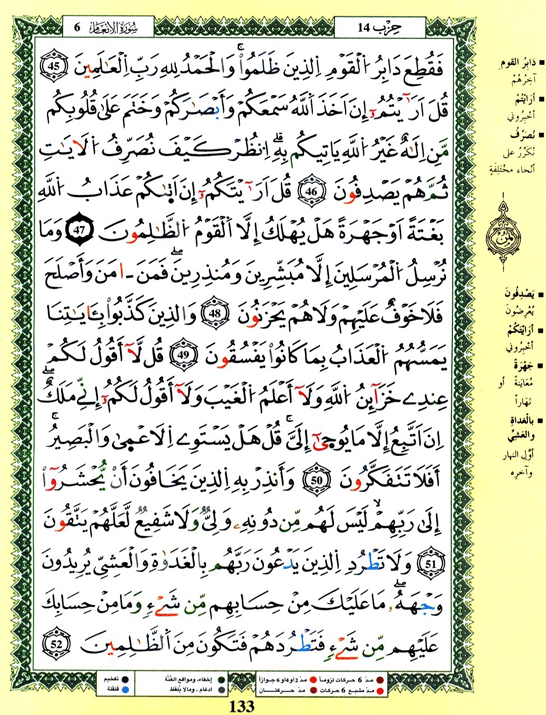 سُورَةُ الْأَنْعَامِ 6
حِزْب 14
فَقُطِعَ دَابِرُ الْقَوْمِ الَّذِينَ ظَلَمُوا وَالْحَمْدُ لِلهِ رَبِّ الْعَالَمِينَ 45
قُلْ أَرَآيْتُمُ إِنْ أَخَذَ اللَّهُ سَمْعَكُمْ وَأَبْصَارَكُمْ وَخَتَمَ عَلَى قُلُوبِكُم
مَّنِ اِلَهٌ غَيْرُ اللَّهِ يَاتِيكُم بِهِ انظُرْ كَيْفَ نُصَرِّفُ الْآيَاتِ
ثُمَّ هُمْ يَصْدِفُونَ 46 قُلَ اَرَآيْتَكُمُ إِنَ اَتَاكُمْ عَذَابُ اللَّهِ
بَغْتَةً اَوْ جَهْرَةً هَلْ يُهْلَكُ إِلَّا الْقَوْمُ الظَّالِمُونَ 47 وَمَا
نُرْسِلُ الْمُرْسَلِينَ إِلَّا مُبَشِّرِينَ وَمُنذِرِينَ فَمَنَ اٰمَنَ وَأَصْلَحَ
فَلَا خَوْفٌ عَلَيْهِمْ وَلَا هُمْ يَحْزَنُونَ 48 وَالَّذِينَ كَذَّبُوا بِـَٔايَاتِنَا
يَمَسُّهُمُ الْعَذَابُ بِمَا كَانُوا يَفْسُقُونَ 49 قُل لَّا أَقُولُ لَكُمْ
عِندِي خَزَآئِنُ اللَّهِ وَلَا أَعْلَمُ الْغَيْبَ وَلَا أَقُولُ لَكُمُ إِنِّي مَلَكٌ
اِنَ اَتَّبِعُ إِلَّا مَا يُوحَى إِلَيَّ قُلْ هَلْ يَسْتَوِي الْاَعْمَى وَالْبَصِيرُ
أَفَلَا تَتَفَكَّرُونَ 50 وَأَنذِرْ بِهِ الَّذِينَ يَخَافُونَ أَنْ يُّحْشَرُوا
إِلَى رَبِّهِمْ لَيْسَ لَهُم مِّن دُونِهِ وَلِيٌّ وَلَا شَفِيعٌ لَّعَلَّهُمْ يَتَّقُونَ
51 وَلَا تَطْرُدِ الَّذِينَ يَدْعُونَ رَبَّهُم بِالْغَدَوٰةِ وَالْعَشِيِّ يُرِيدُونَ
وَجْهَهُ مَا عَلَيْكَ مِنْ حِسَابِهِم مِّن شَيْءٍ وَمَا مِنْ حِسَابِكَ
عَلَيْهِم مِّن شَيْءٍ فَتَطْرُدَهُمْ فَتَكُونَ مِنَ الظَّالِمِينَ 52
■ دَابِرُ القومِ
آخِرُهُمْ
■ أرَايْتُمْ
أخْبِرُوني
■ نُصَرِّفُ
نُكَرِّرُ على
أنحاء مختلِفَةٍ
ثمن
■ يَصْدِفُونَ
يُعْرِضُونَ
■ أرَايْتَكُمْ
أخْبِرُوني
■ جَهْرَةً
مُعَايَنَةً أو
نَهَاراً
■ بالغداةِ
والعَشِيِّ
أوّل النهار
وآخِره
مدّ 6 حركات لزوماً مدّ 2 أو 4 أو 6 جوازاً إخفاء، ومواقع الغُنَّة تفخيم
مدّ مشبع 6 حركات مدّ حركتان إدغام، وما لا يُلفظ قلقلة
133